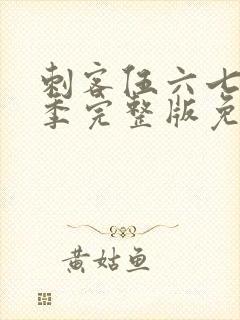 刺客伍六七
季完整版免
黄姑鱼